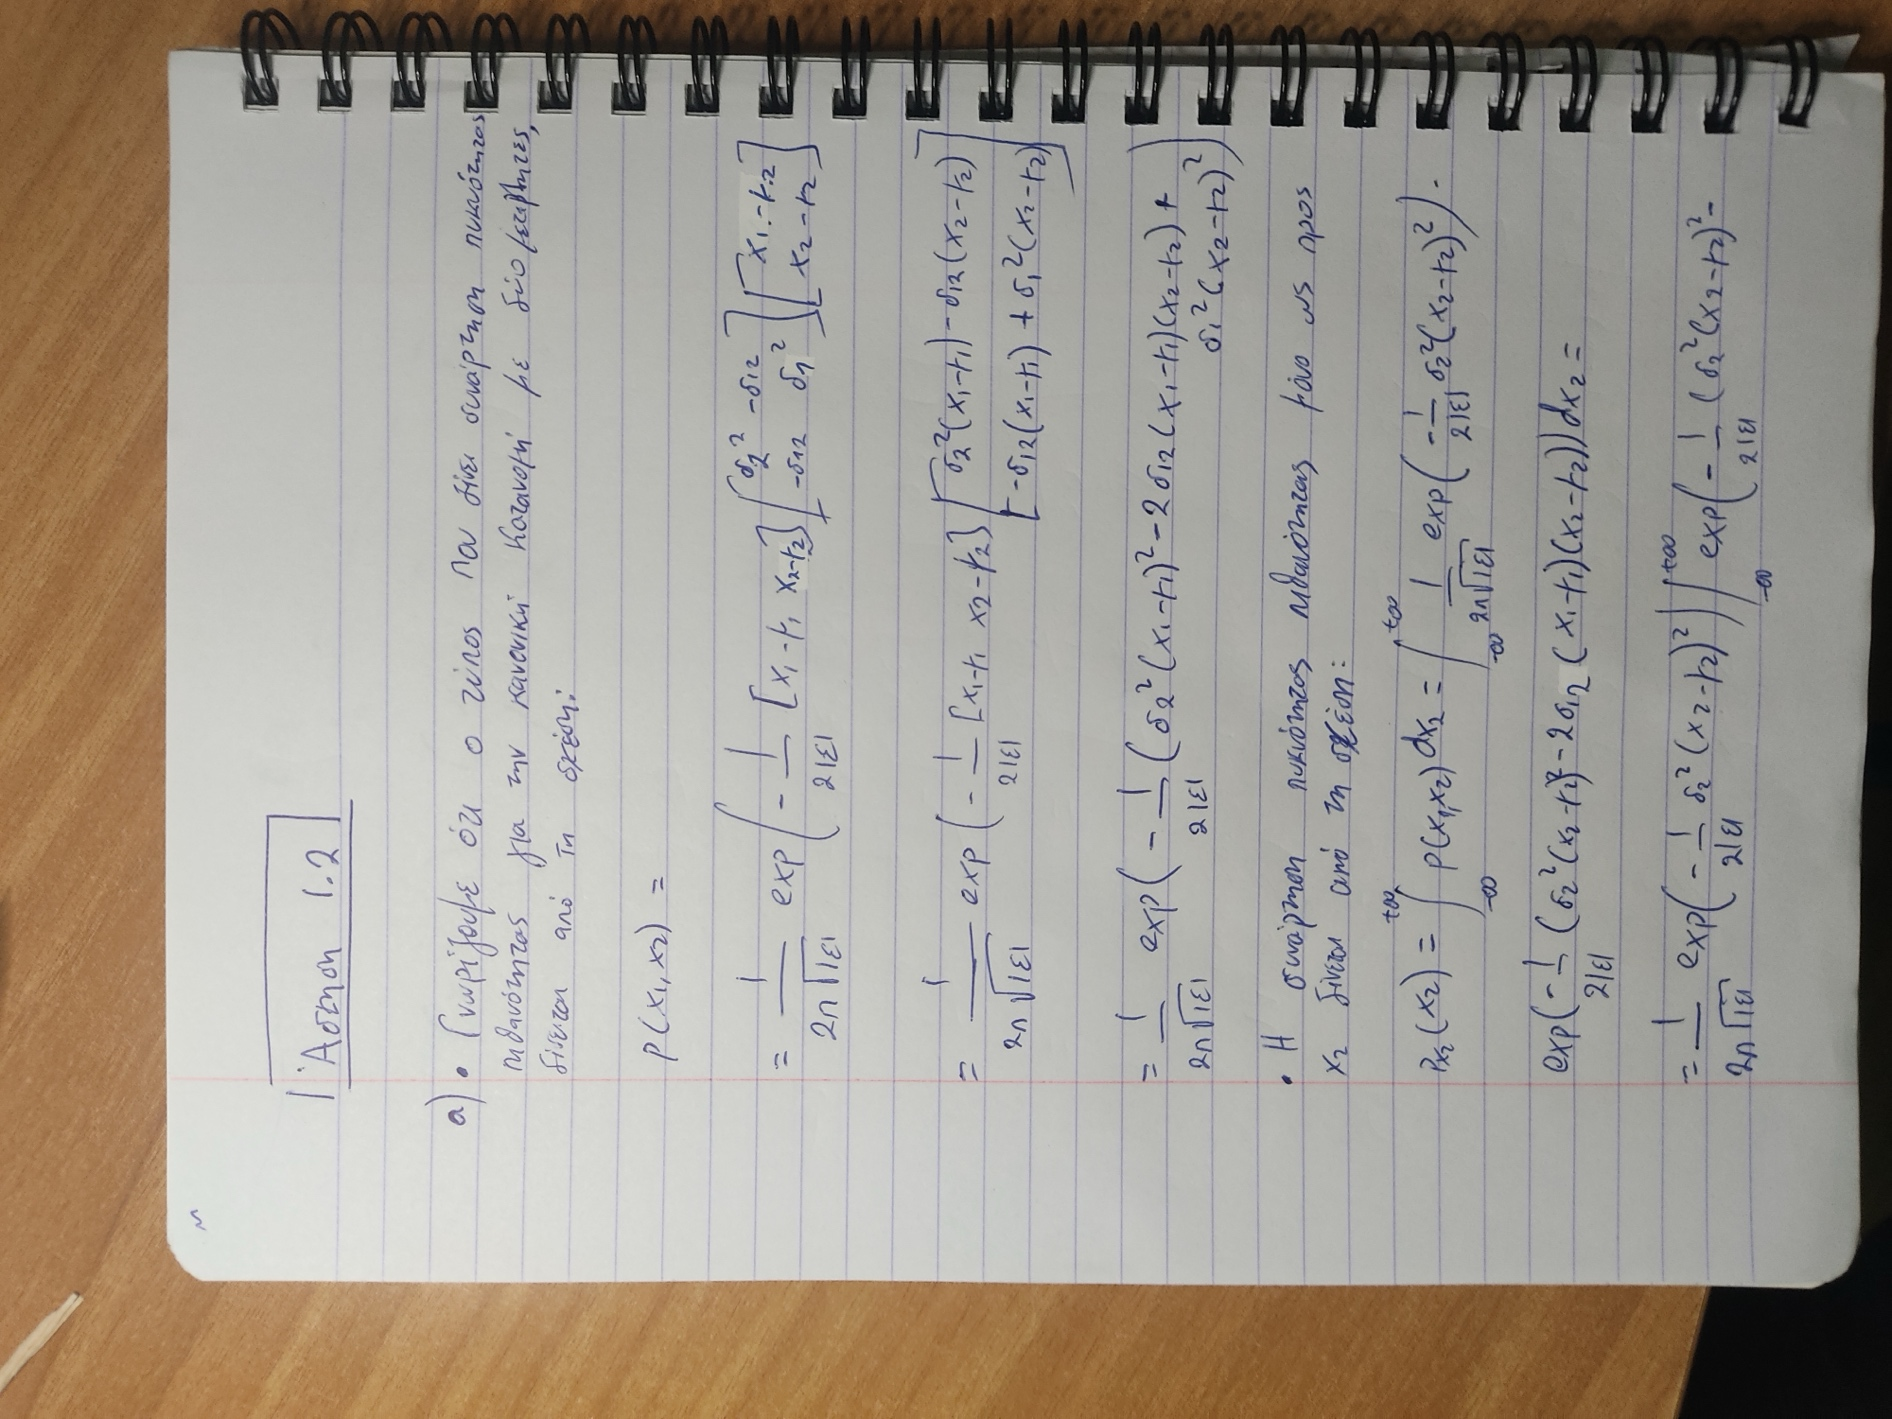 Άσκηση 1.2
α) • Γνωρίζουμε ότι ο τύπος που δίνει συνάρτηση πυκνότητας
πιθανότητας για την κανονική κατανομή με δύο μεταβλητές,
δίνεται από τη σχέση:
p(x₁,x₂) =
= 1/(2π√|Σ|) exp(-1/(2|Σ|) [x₁-μ₁ x₂-μ₂] [σ₂² -σ₁₂ / -σ₁₂ σ₁²] [x₁-μ₂ / x₂-μ₂])
= 1/(2π√|Σ|) exp(-1/(2|Σ|) [x₁-μ₁ x₂-μ₂] [σ₂²(x₁-μ₁)-σ₁₂(x₂-μ₂) / -σ₁₂(x₁-μ₁)+σ₁²(x₂-μ₂)])
= 1/(2π√|Σ|) exp(-1/(2|Σ|) (σ₂²(x₁-μ₁)²-2σ₁₂(x₁-μ₁)(x₂-μ₂)+
σ₁²(x₂-μ₂)²)
• Η συνάρτηση πυκνότητας πιθανότητας μόνο ως προς
x₂ δίνεται από τη σχέση:
p_{x₂}(x₂) = ∫_{-∞}^{+∞} p(x₁,x₂)dx₂ = ∫_{-∞}^{+∞} 1/(2π√|Σ|) exp(-1/(2|Σ|) σ₂²(x₂-μ₂)²).
exp(-1/(2|Σ|) (σ₂²(x₂-μ₂)²-2σ₁₂(x₁-μ₁)(x₂-μ₂)))dx₂ =
= 1/(2π√|Σ|) exp(-1/(2|Σ|) σ₂²(x₂-μ₂)²) ∫_{-∞}^{+∞} exp(-1/(2|Σ|) (σ₂²(x₂-μ₂)²-